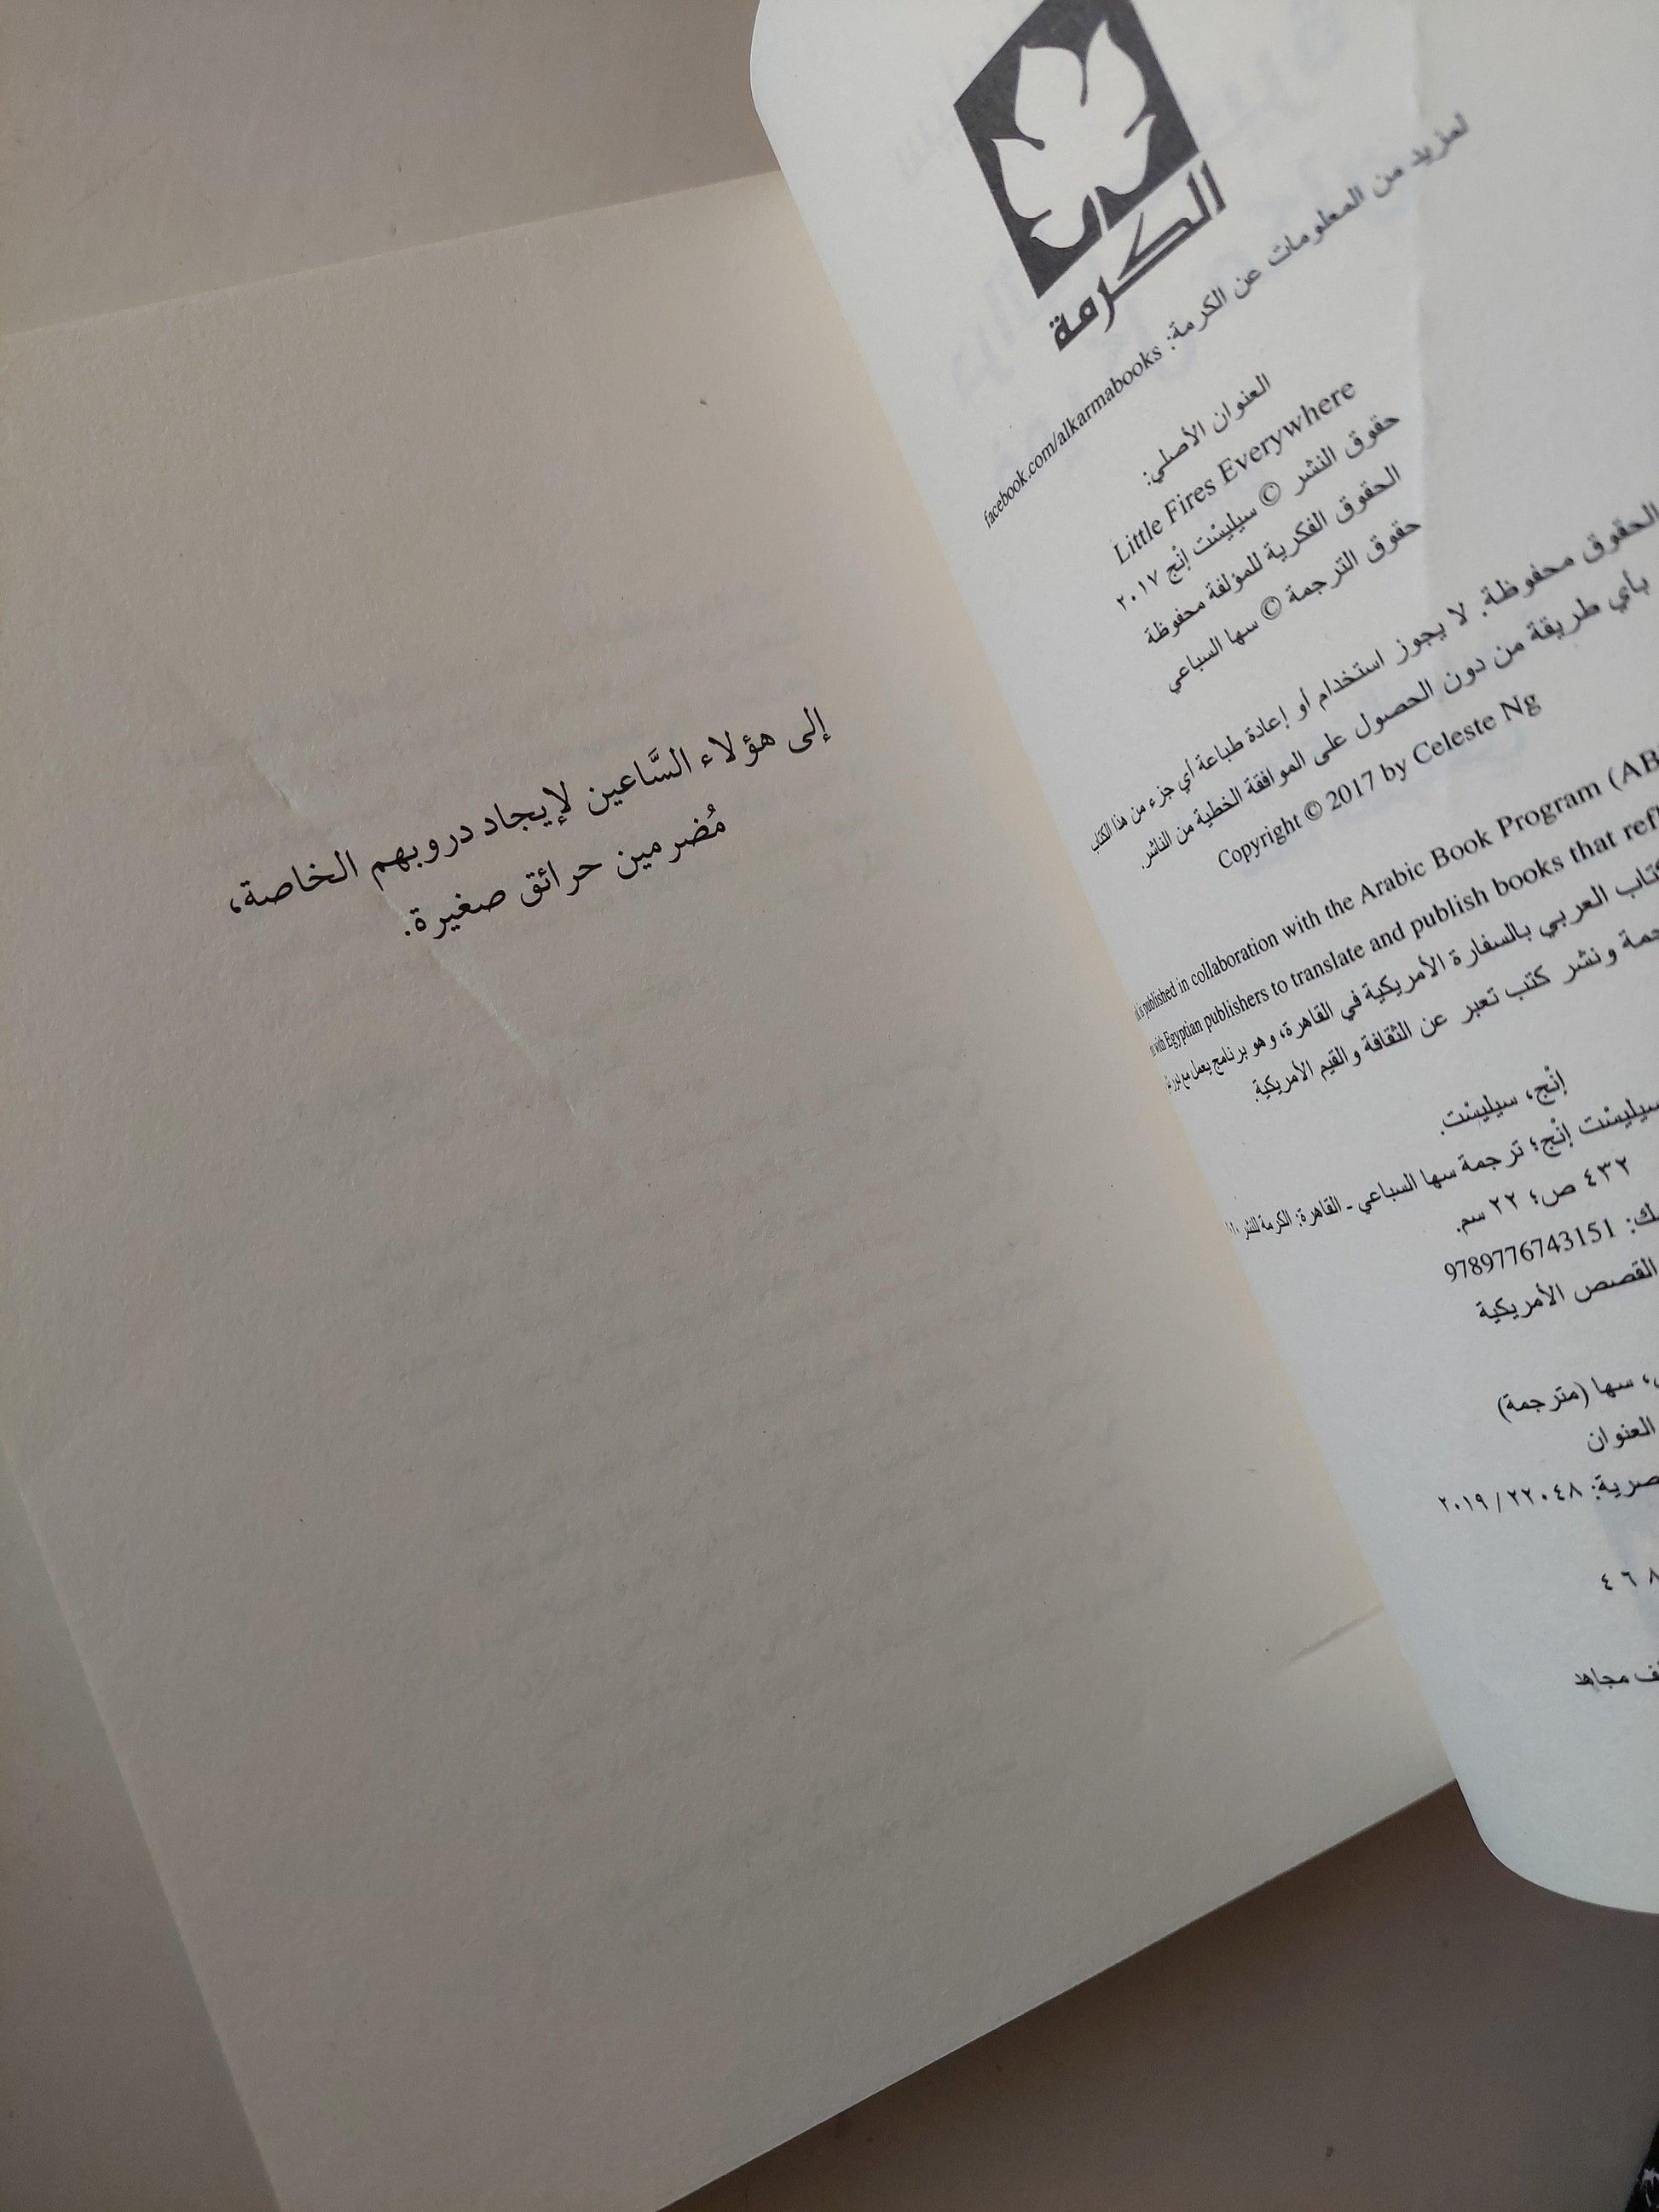 الكرمة
لمزيد من المعلومات عن الكرمة: facebook.com/alkarmabooks
العنوان الأصلي:
Little Fires Everywhere
حقوق النشر © سيليسْت إنْج ٢٠١٧
الحقوق الفكرية للمؤلفة محفوظة
حقوق الترجمة © سها السباعي
الحقوق محفوظة. لا يجوز استخدام أو إعادة طباعة أي جزء من هذا الكتاب
بأي طريقة من دون الحصول على الموافقة الخطية من الناشر.
Copyright © 2017 by Celeste Ng
is published in collaboration with the Arabic Book Program (AB
with Egyptian publishers to translate and publish books that refl
العربي بالسفارة الأمريكية في القاهرة، وهو برنامج يعمل مع
ونشر كتب تعبر عن الثقافة والقيم الأمريكية.
إنْج، سيليسْت.
سيليسْت إنْج؛ ترجمة سها السباعي - القاهرة: الكرمة للنشر
٤٣٢ ص؛ ٢٢ سم.
9789776743151
القصص الأمريكية
سها (مترجمة)
العنوان
٢٢٠٤٨ / ٢٠١٩
٨ ٦ ٤
مجاهد
إلى هؤلاء السَّاعين لإيجاد دروبهم الخاصة،
مُضرمين حرائق صغيرة.